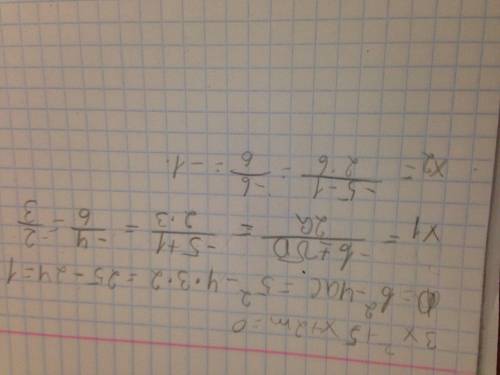 3x² + 5x + 2m = 0
D = b² - 4ac = 5² - 4·3·2 = 25 - 24 = 1
x1 = (-b + √D) / 2a = (-5 + 1) / 2·3 = -4/6 = -2/3
x2 = (-5 - 1) / 2·6 = -6/6 = -1.